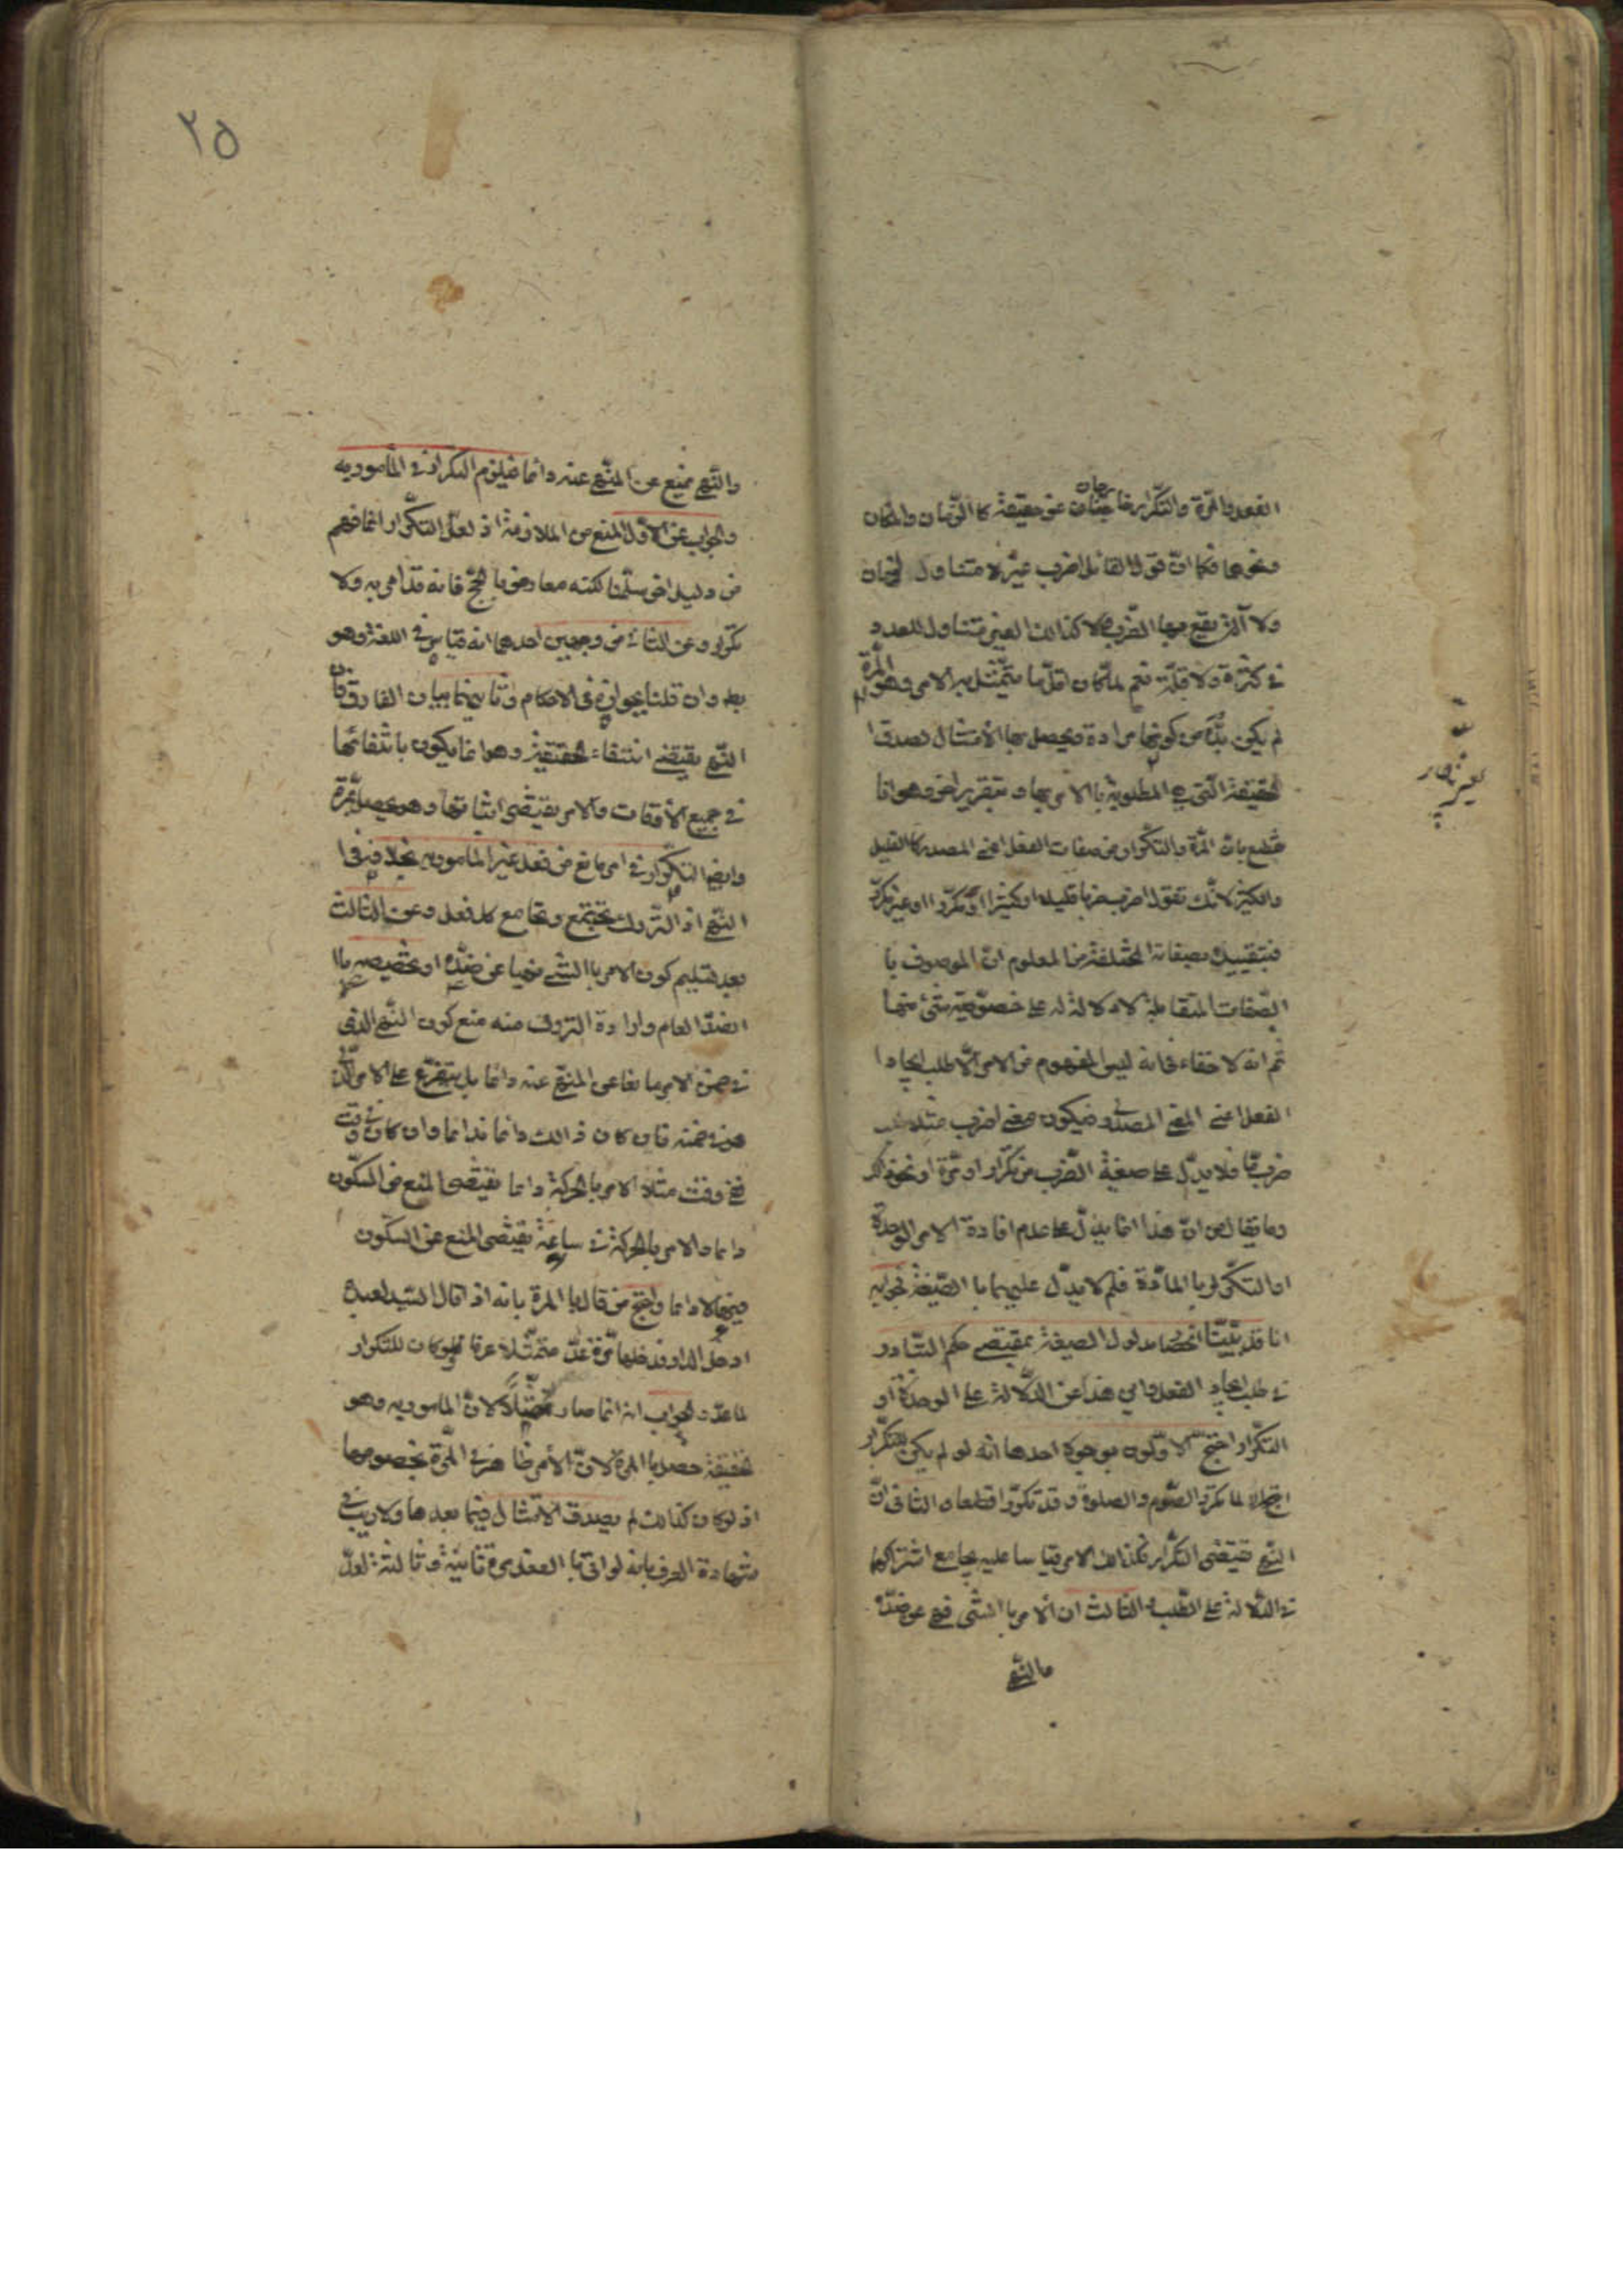 الفعل والمرة والتكرار خارجان عن حقيقته كالزمان والمكان
ونحوهما فكما ان قول القائل اضرب غير متناول لمكان
ولا زمان ولا آلة يقع بها الضرب كذلك الغير متناول للعدد
في كثرة ولا قلة نعم لما كان اقل ما يتمثل به الامر هو المرة
لم يكن بد من كونها مرادة ويحصل بها الامتثال لصدق
الحقيقة التي هي المطلوبة بالامر بها وبتقرير اخر وهو انا
نقطع بان المرة والتكرار من صفات الفعل اعني المصدر كالقليل
والكثير لانك تقول اضرب ضربا قليلا او كثيرا او مكررا او غير مكرر
فتقيده بصفاته المختلفة ومن المعلوم ان الموصوف با
الصفات المتقابلة لا دلالة له على خصوصية شئ منها
ثم انه لا خفاء في انه ليس المفهوم من الامر الا طلب ايجاد ا
الفعل اعني المعنى المصدري فيكون معنى اضرب مثلا طلب
ضرب ما فلا يدل على صفة الضرب من تكرار او مرة او نحو ذلك
وما يقال من ان هذا انما يدل على عدم افادة الامر الوحدة
او التكرار بالمادة فلم لا يدل عليهما با الصيغة فجوابه
انا قد بينا انحصار مدلول الصيغة بمقتضى حكم التبادر
في طلب ايجاد الفعل واين هذا عن الدلالة على الوحدة او
التكرار احتج الاولون بوجوه احدها انه لو لم يكن للتكرار
لما تكرر الصوم والصلوة وقد تكررا قطعا والثاني ان
النهي يقتضي التكرار فكذلك الامر قياسا عليه بجامع اشتراكهما
في الدلالة على الطلب والثالث ان الامر با الشئ نهي عن ضده
والنهي
٢٥
والنهي يمنع عن المنهي عنه دائما فيلزم التكرار في المأمور به
والجواب عن الاول المنع من الملازمة اذ لعل التكرار انما فهم
من دليل اخر سلمنا لكنه معارض بالحج فانه قد امر به ولا
تكرار وعن الثاني من وجهين احدهما انه قياس في اللغة وهو
بط وان قلنا بجوازه في الاحكام وثانيهما بيان الفارق فان
النهي يقتضي انتفاء الحقيقة وهو انما يكون بانتفائها
في جميع الاوقات والامر يقتضي اثباتها وهو يحصل بمرة
وايضا التكرار في امر مانع من فعل غير المأمور به بخلافه في ا
النهي اذ التروك تجتمع وتجامع كل فعل وعن الثالث
بعد تسليم كون الامر با الشئ نهيا عن ضده او تخصيصه با
الضد العام وارادة الترك منه منع كون النهي الذي
في ضمن الامر مانعا عن المنهي عنه دائما بل يتفرع على الامر الذي
هو في ضمنه فان كان ذلك دائما فدائما وان كان في وقت
ففي وقت مثلا الامر بالحركة دائما يقتضي المنع من السكون
دائما والامر بالحركة في ساعة يقتضي المنع عن السكون
فيها لا دائما واحتج من قال بالمرة بانه اذا قال السيد لعبده
ادخل الدار فدخلها مرة عد متمثلا عرفا ولو كان للتكرار
لما عد والجواب انه انما صار ممتثلا لان المأمور به وهو
الحقيقة حصل بالمرة لا ان الامر ظاهر في المرة بخصوصها
اذ لو كان كذلك لم يصدق الامتثال فيما بعدها ولا ريب في
شهادة العرف بانه لو اتى با الفعل مرة ثانية وثالثة لعد